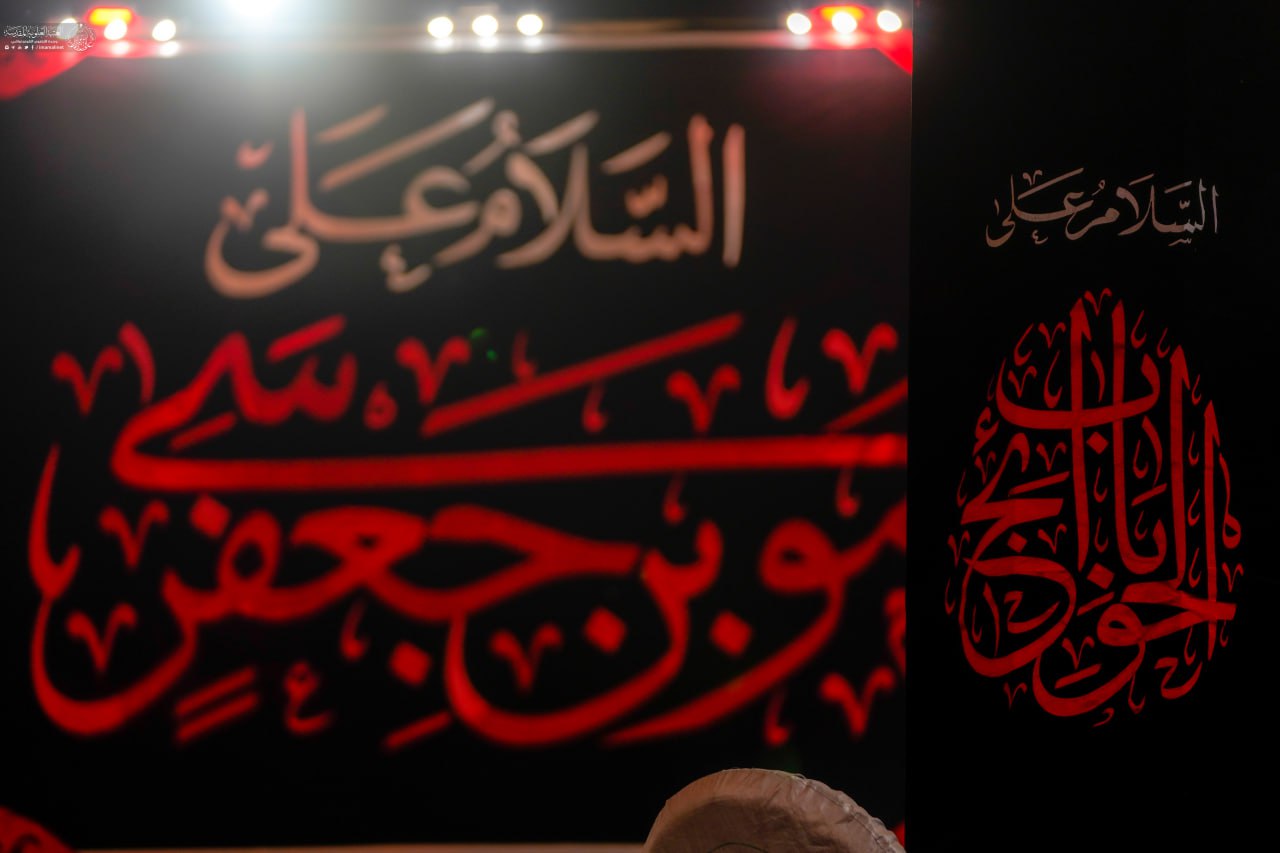 السَّلَامُ عَلَى
مُوسَى بْنِ جَعْفَرٍ
السَّلَامُ عَلَى
بَابِ الْحَوَائِجِ